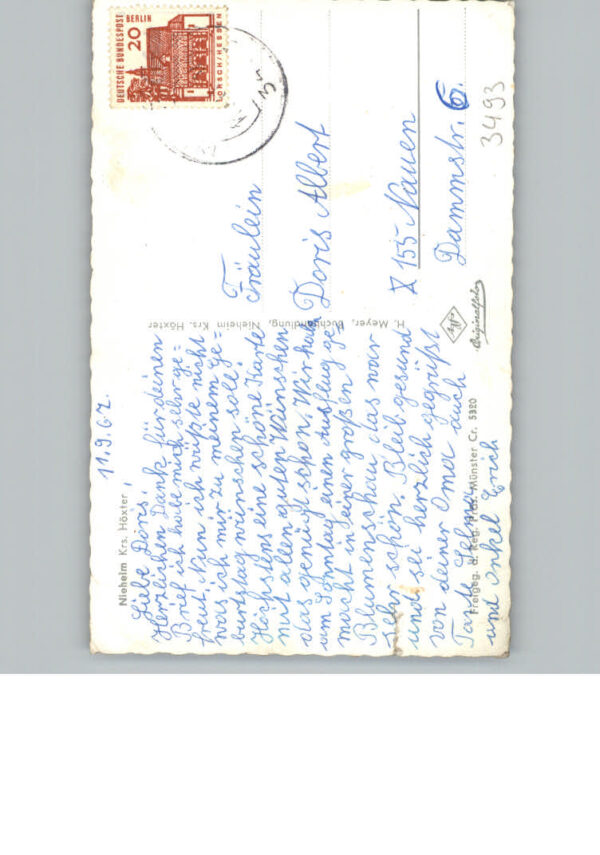 11.9.67.
Nieheim Krs. Höxter
Liebe Doris!
Herzlichen Dank für deinen
Brief ich habe mich sehr ge-
freut, Nun ich wüßte nicht
was ich mir zu meinem Ge-
burtstag wünschen soll.
Höchstens eine schöne Karte
mit allen guten Wünschen
das genügt schon. Wir haben
am Sonntag einen Ausflug ge
macht in einer großen
Blumenschau, das war
sehr schön. Bleib gesund
und sei herzlich gegrüßt
von deiner Oma auch
Tante
und onkel Erich
Freigeg. d. Reg. Präs. Münster Cr. 5320
H. Meyer, Buchhandlung, Nieheim Krs. Höxter
Agfa
Originalfoto
DEUTSCHE BUNDESPOST
BERLIN
20
LORSCH/HESSEN
Fräulein
Doris Albert
X 155 Nauen
Dammstr. 6.
3493